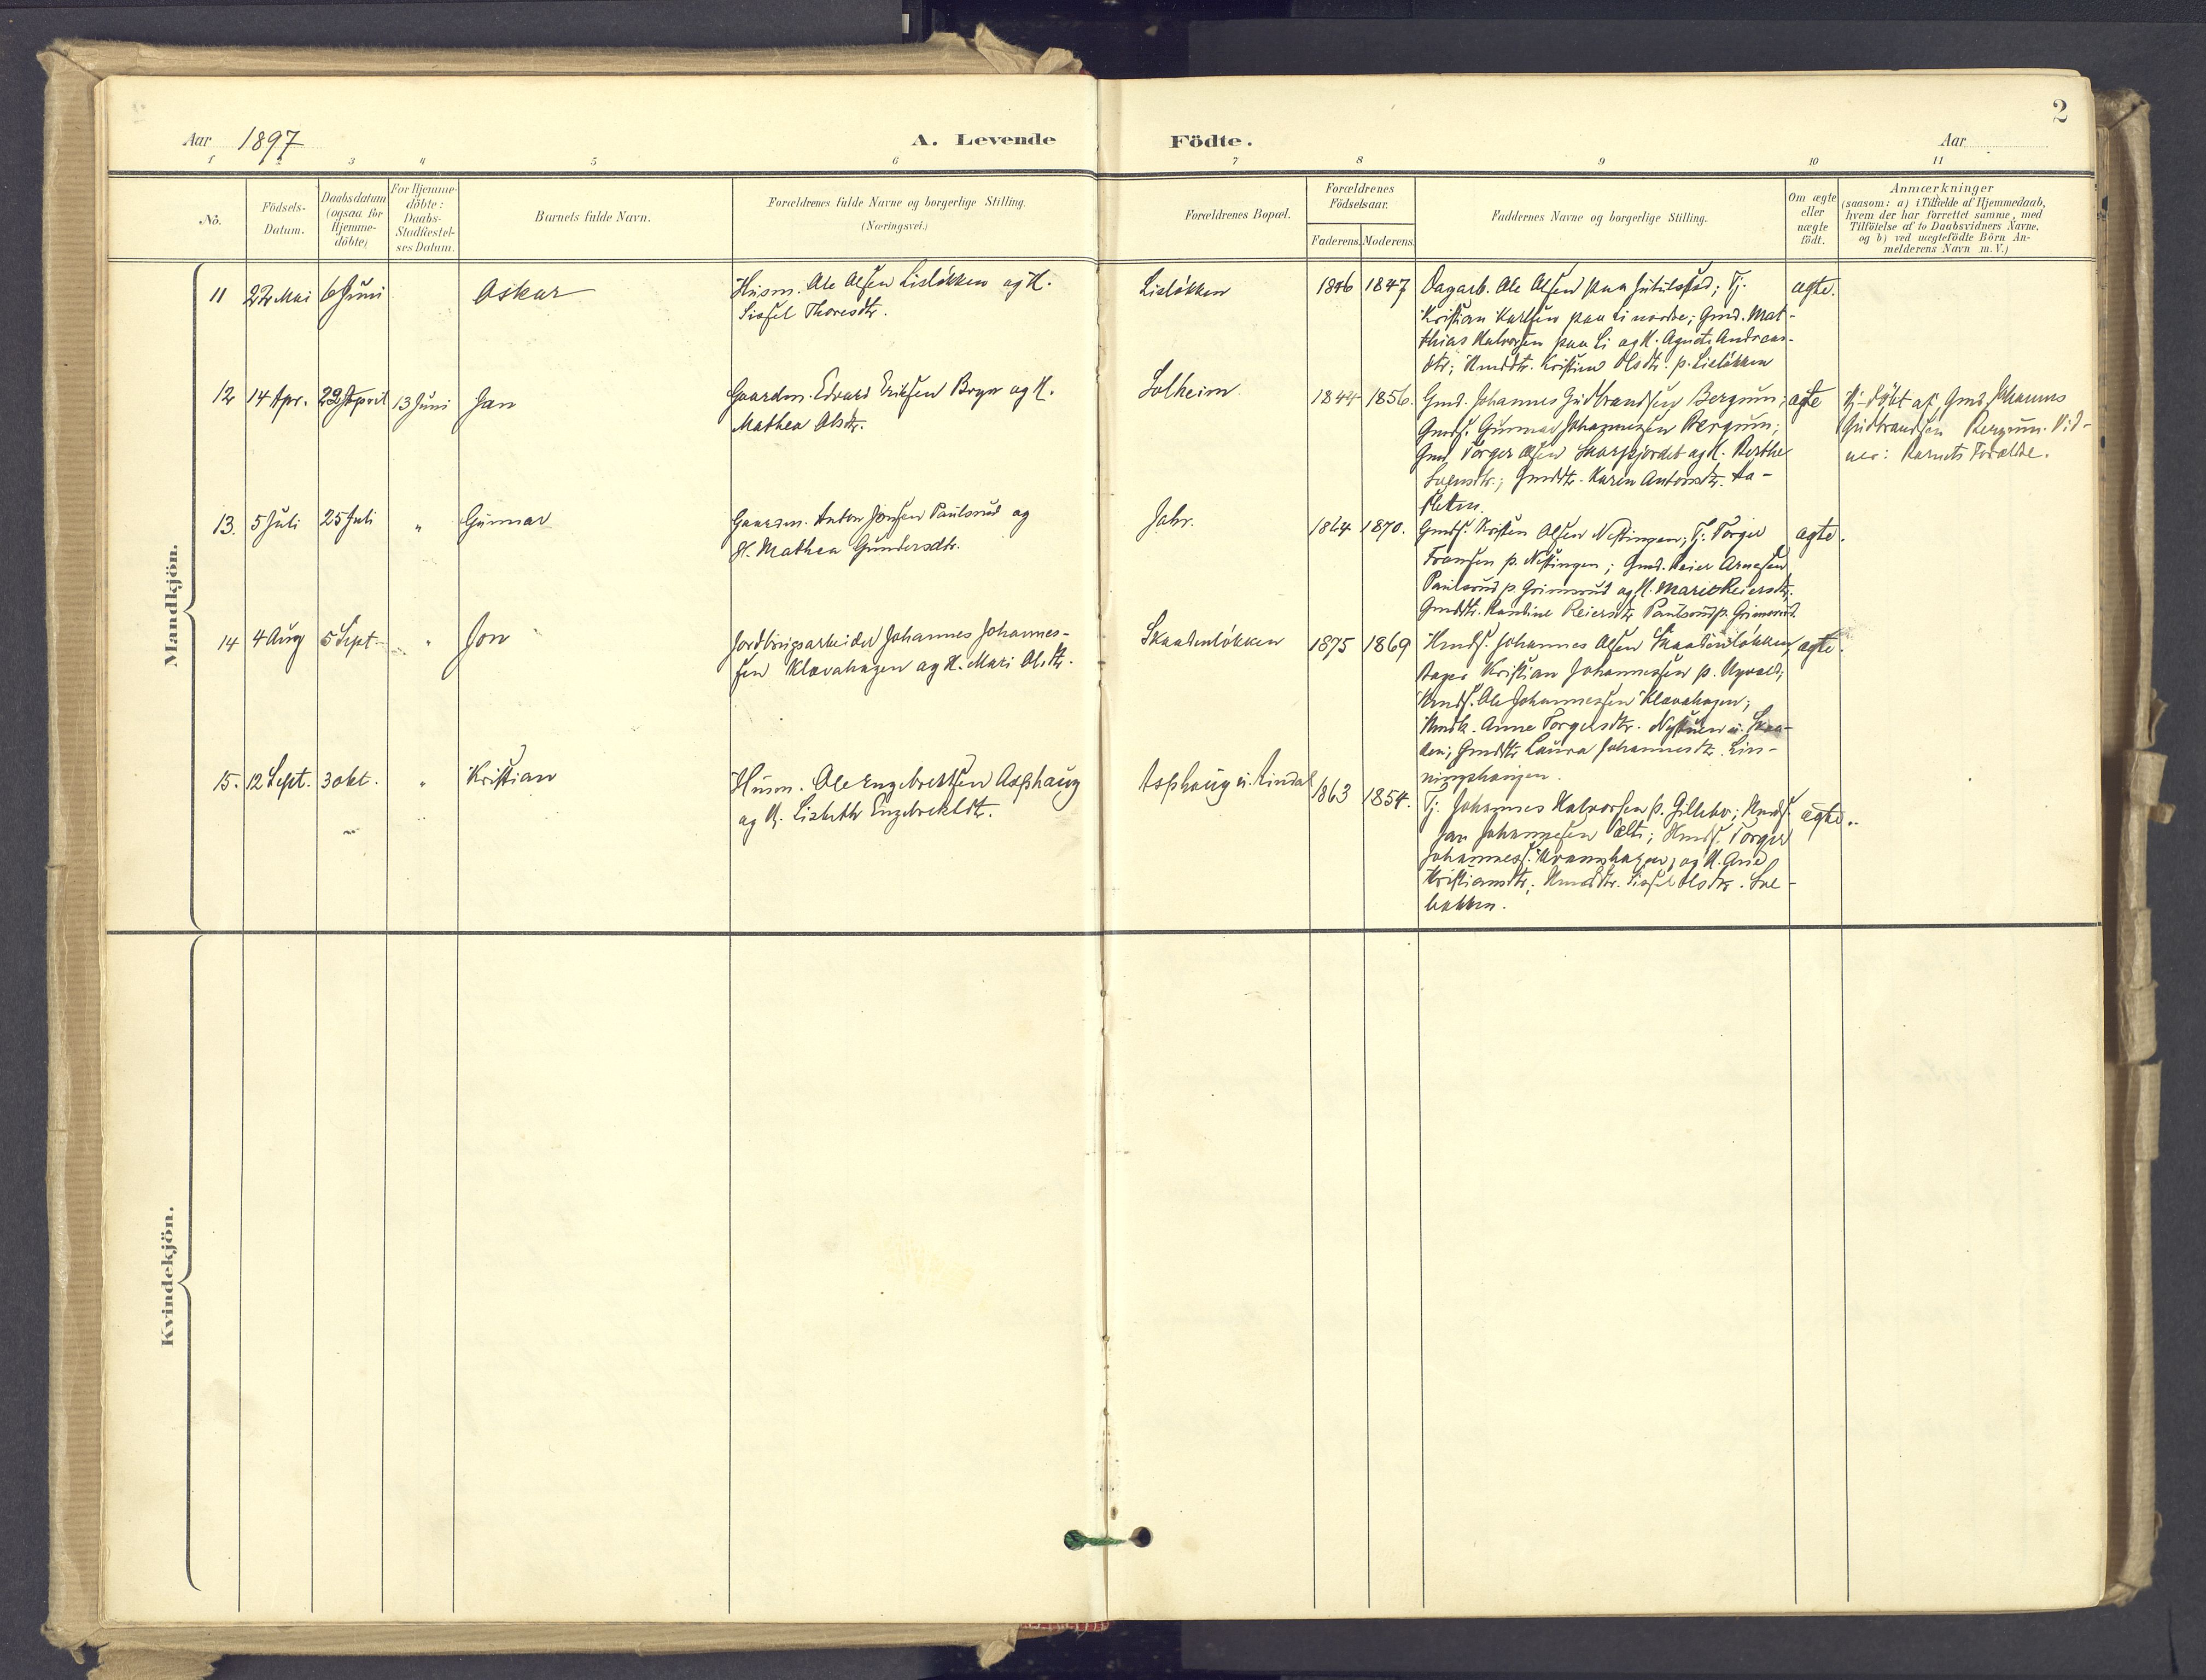 2
Aar 1897
A. Levende
Födte.
Aar
1 2 3 4 5 6 7 8 9 10 11
No.
Födsels-
Datum.
Daabsdatum
(ogsaa for
Hjemme-
döbte)
For Hjemme-
döbte:
Daabs-
Stadfæstel-
ses Datum.
Barnets fulde Navn.
Forældrenes fulde Navne og borgerlige Stilling.
(Næringsvei.)
Forældrenes Bopæl.
Forældrenes
Födselsaar.
Faderens.
Moderens.
Faddernes Navne og borgerlige Stilling.
Om ægte
eller
uægte
födt.
Anmærkninger
(saasom: a) i Tilfælde af Hjemmedaab,
hvem der har forrettet samme, med
Tilföielse af to Daabsvidners Navne.
og b) ved uægtefödte Börn An-
melderens Navn m.V.)
Mandkjön.
11 22 Mai 6 Juni Oskar
Husm. Ole Olsen Lislökken og H.
Sissel Thoresdtr.
Lislökken
1846 1847
Dagarb. Ole Olsen paa; Tj.
Kristian Karlsen paa Li nordre; Gmd. Mat-
thias Halvorsen paa Li og H. Agnete Andreas-
dtr; Hmddtr. Kristine Olsdtr. p. Lislökken
ægte.
12 14 Apr. 22 April 13 Juni Jan
Gaardm. Edvard Eriksen Bryn og H.
Mathea Olsdtr.
Solheim
1844 1856.
Gmd. Johannes Gudbrandsen Bergum;
Gmds. Gunnar Johannesen Bergum;
Gmd. Torger Olsen og H. Berthe
Gmddtr. Karen Antonsdtr. Aa-
ægte
Hj. döbt af Gmd. Johannes
Gudbrandsen Bergum. Vid-
ner: Barnets Forældre.
13. 5 Juli 25 Juli " Gunnar
Gaardm. Anton Jonsen Paulsrud og
H. Mathea Gundersdtr.
Jahr.
1864 1870.
Gmds. Kristen Olsen Nestingen; Tj. Torger
Fransen p. Nestingen; Gmd. Reier Arnesen
Paulsrud p. Grimsrud og H. Marie Reiersdtr;
Gmddtr. Randine Reiersdtr. Paulsrud p. Grimsrud.
ægte.
14 4 Aug 5 Sept. " Jon
Jordbrugsarbeider Johannes Johannes-
sen Klavahagen og H. Mari Olsdtr.
Skaadenlökken
1875 1869
Hmds. Johannes Olsen Skaadenlökken;
Kristian Johannessen p.
Hmds. Ole Johannessen Klavahagen;
Hmdk. Anne Torgersdtr. u. Skaa-
den; Gmddtr. Laura Johannesdtr. Lin-
ningshaugen.
ægte.
15. 12 Sept. 3 okt. " Kristian
Husm. Ole Engebretsen Asphaug
og H. Lisbeth Engebrektsdtr.
Asphaug u. Lindal
1863 1854.
Tj. Johannes Halvorsen p. Gillebo; Hmds.
Jan Johannesen; Hmds. Torger
Johanness. og H.
Kristiansdtr; Hmddtr. Sissel Olsdtr. Sol-
bakken.
ægte.
Kvindekjön.